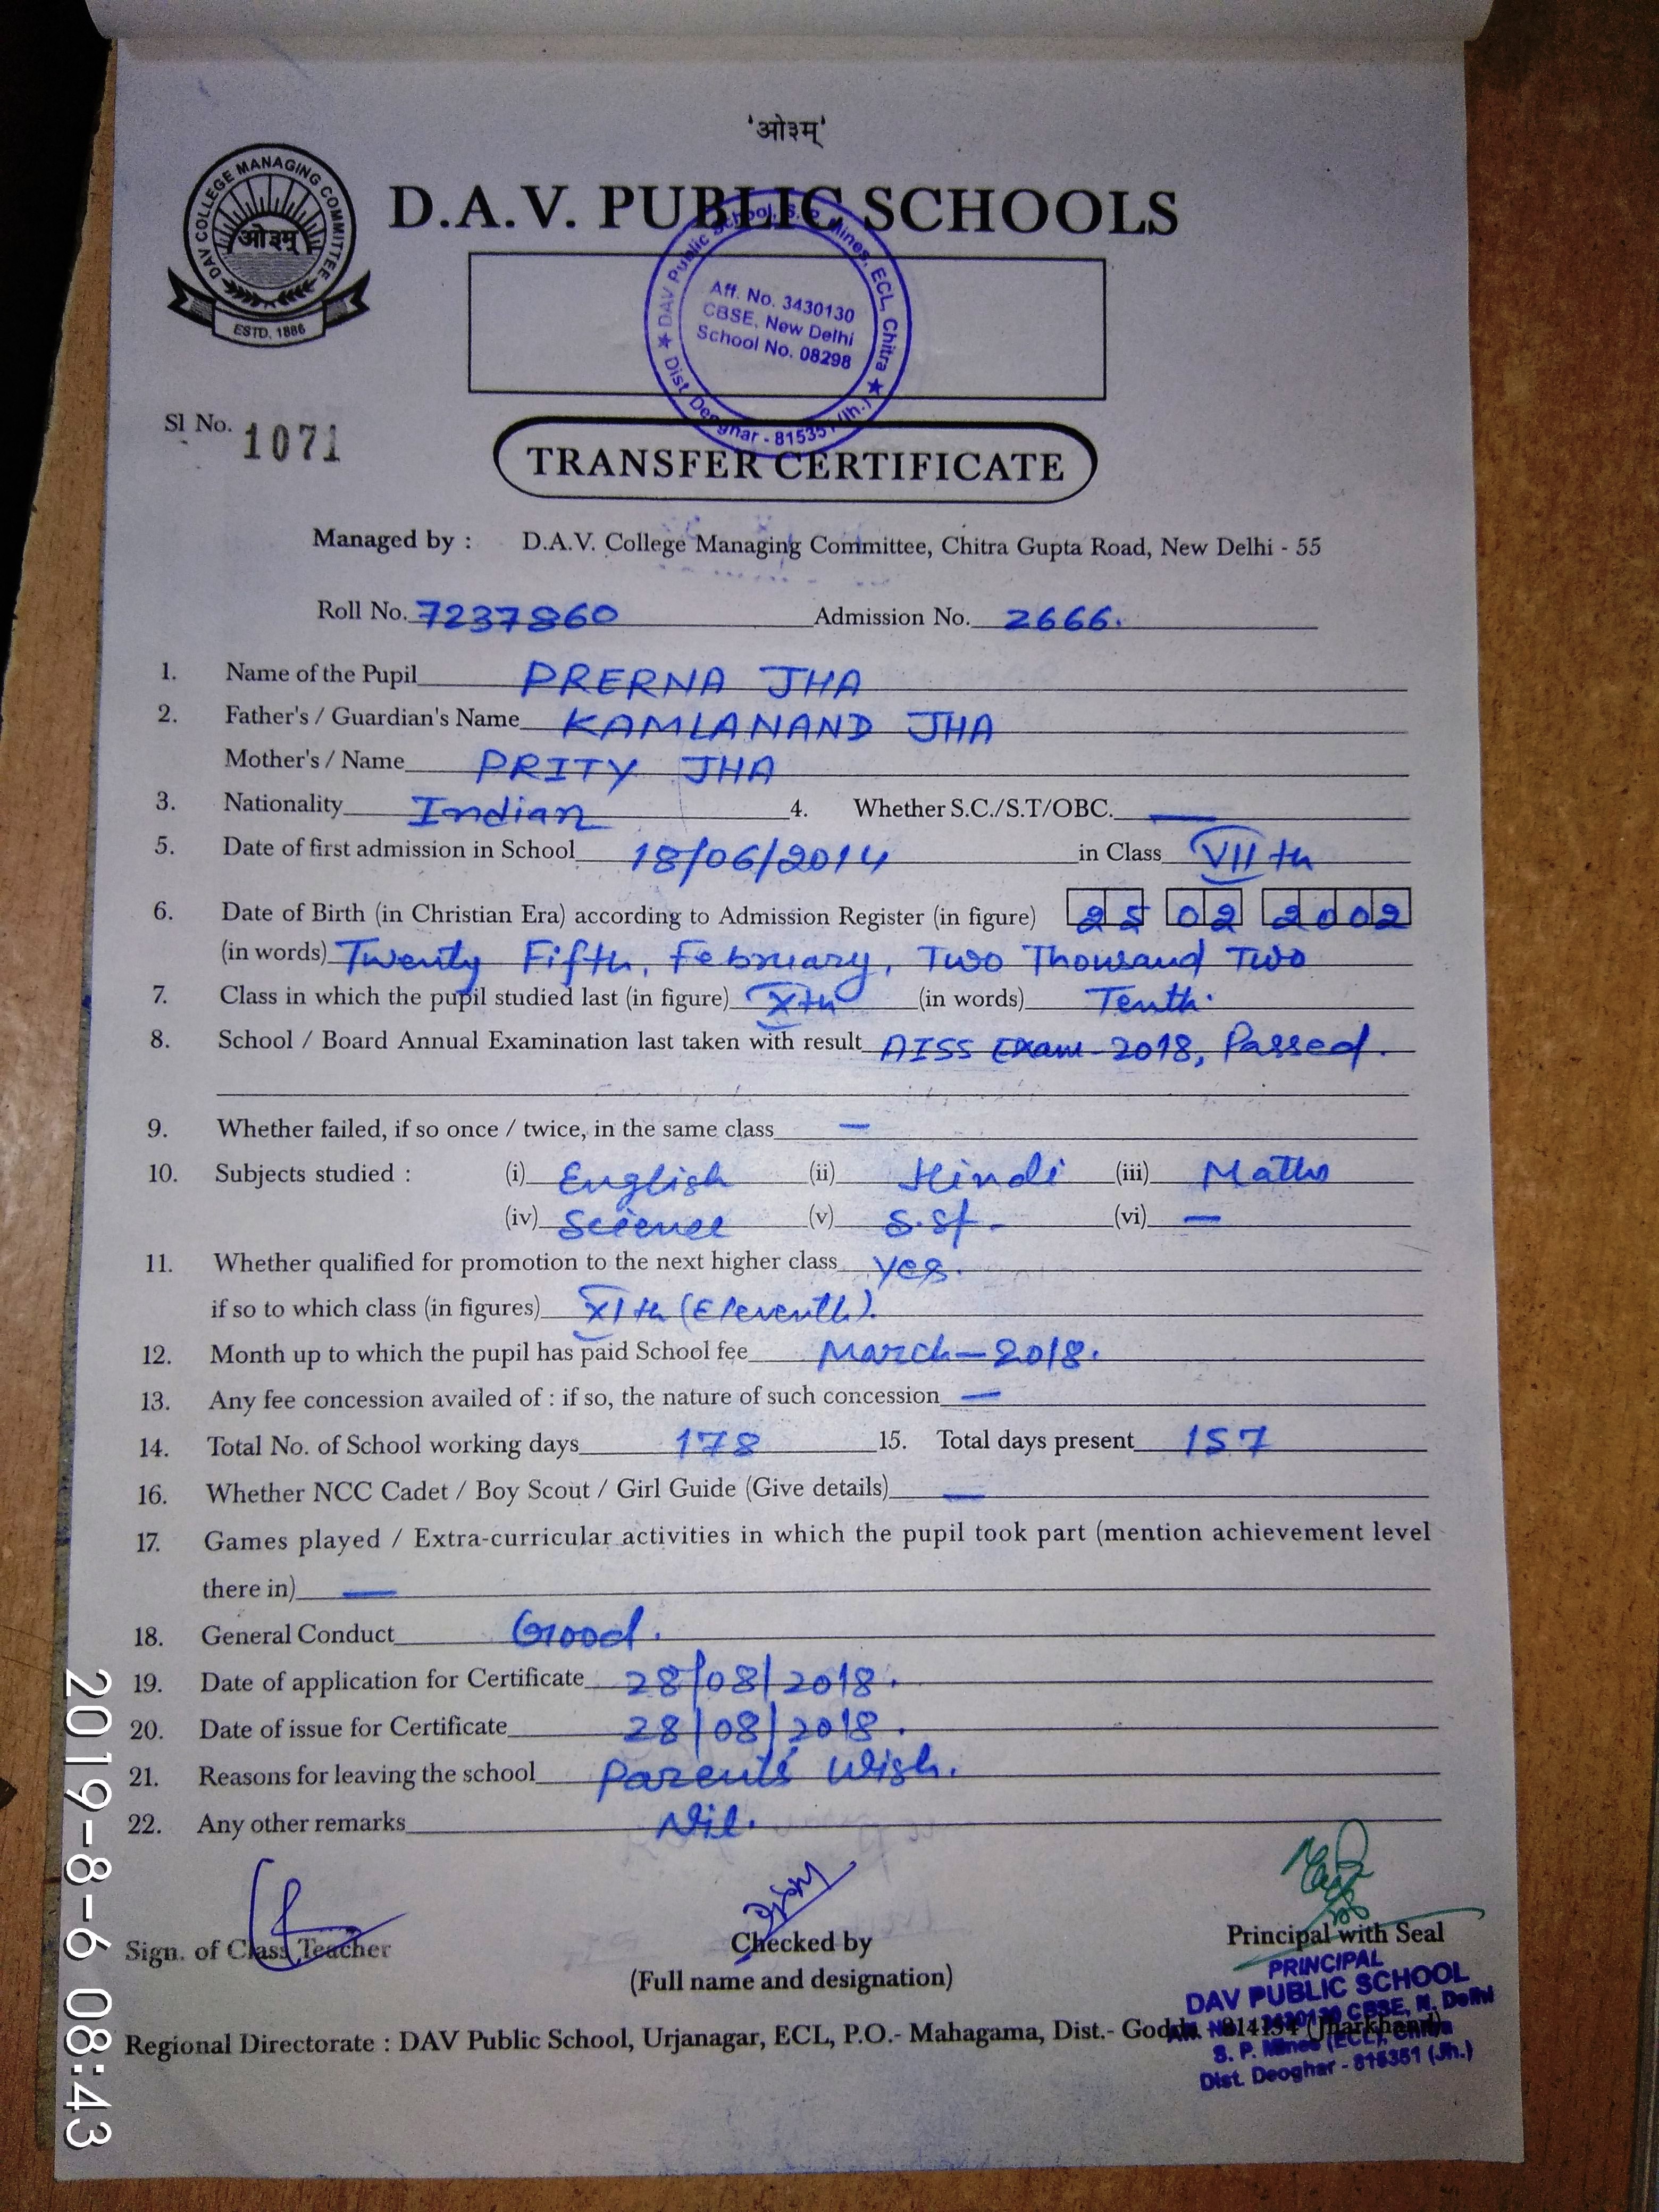 'ओ३म्'
DAV COLLEGE MANAGING COMMITTEE
ओ३म्
ESTD. 1886
D.A.V. PUBLIC SCHOOLS
★ DAV Public School, S. P. Mines, ECL, Chitra ★
Aff. No. 3430130
CBSE, New Delhi
School No. 08298
Dist. Deoghar - 815351 (Jh.)
Sl No. 1071
TRANSFER CERTIFICATE
Managed by : D.A.V. College Managing Committee, Chitra Gupta Road, New Delhi - 55
Roll No. 7237860 Admission No. 2666.
1. Name of the Pupil PRERNA JHA
2. Father's / Guardian's Name KAMLANAND JHA
Mother's / Name PRITY JHA
3. Nationality Indian 4. Whether S.C./S.T/OBC. —
5. Date of first admission in School 18/06/2014 in Class VII th
6. Date of Birth (in Christian Era) according to Admission Register (in figure) 25 02 2002
(in words) Twenty Fifth, February, Two Thousand Two
7. Class in which the pupil studied last (in figure) Xth (in words) Tenth.
8. School / Board Annual Examination last taken with result AISS Exam-2018, Passed.
9. Whether failed, if so once / twice, in the same class —
10. Subjects studied : (i) English (ii) Hindi (iii) Maths
(iv) Science (v) S.St. (vi) —
11. Whether qualified for promotion to the next higher class yes.
if so to which class (in figures) XI th (Eleventh).
12. Month up to which the pupil has paid School fee March-2018.
13. Any fee concession availed of : if so, the nature of such concession —
14. Total No. of School working days 178 15. Total days present 157
16. Whether NCC Cadet / Boy Scout / Girl Guide (Give details) —
17. Games played / Extra-curricular activities in which the pupil took part (mention achievement level
there in) —
18. General Conduct Good.
19. Date of application for Certificate 28/08/2018.
20. Date of issue for Certificate 28/08/2018.
21. Reasons for leaving the school Parents' Wish.
22. Any other remarks Nil.
Sign. of Class Teacher
Checked by
(Full name and designation)
Principal with Seal
PRINCIPAL
DAV PUBLIC SCHOOL
Aff. No. 3430130 CBSE, N. Delhi
Regional Directorate : DAV Public School, Urjanagar, ECL, P.O.- Mahagama, Dist.- Godda - 814154 (Jharkhand)
S. P. Mines (ECL), Chitra
Dist. Deoghar - 815351 (Jh.)
2019-8-6 08:43